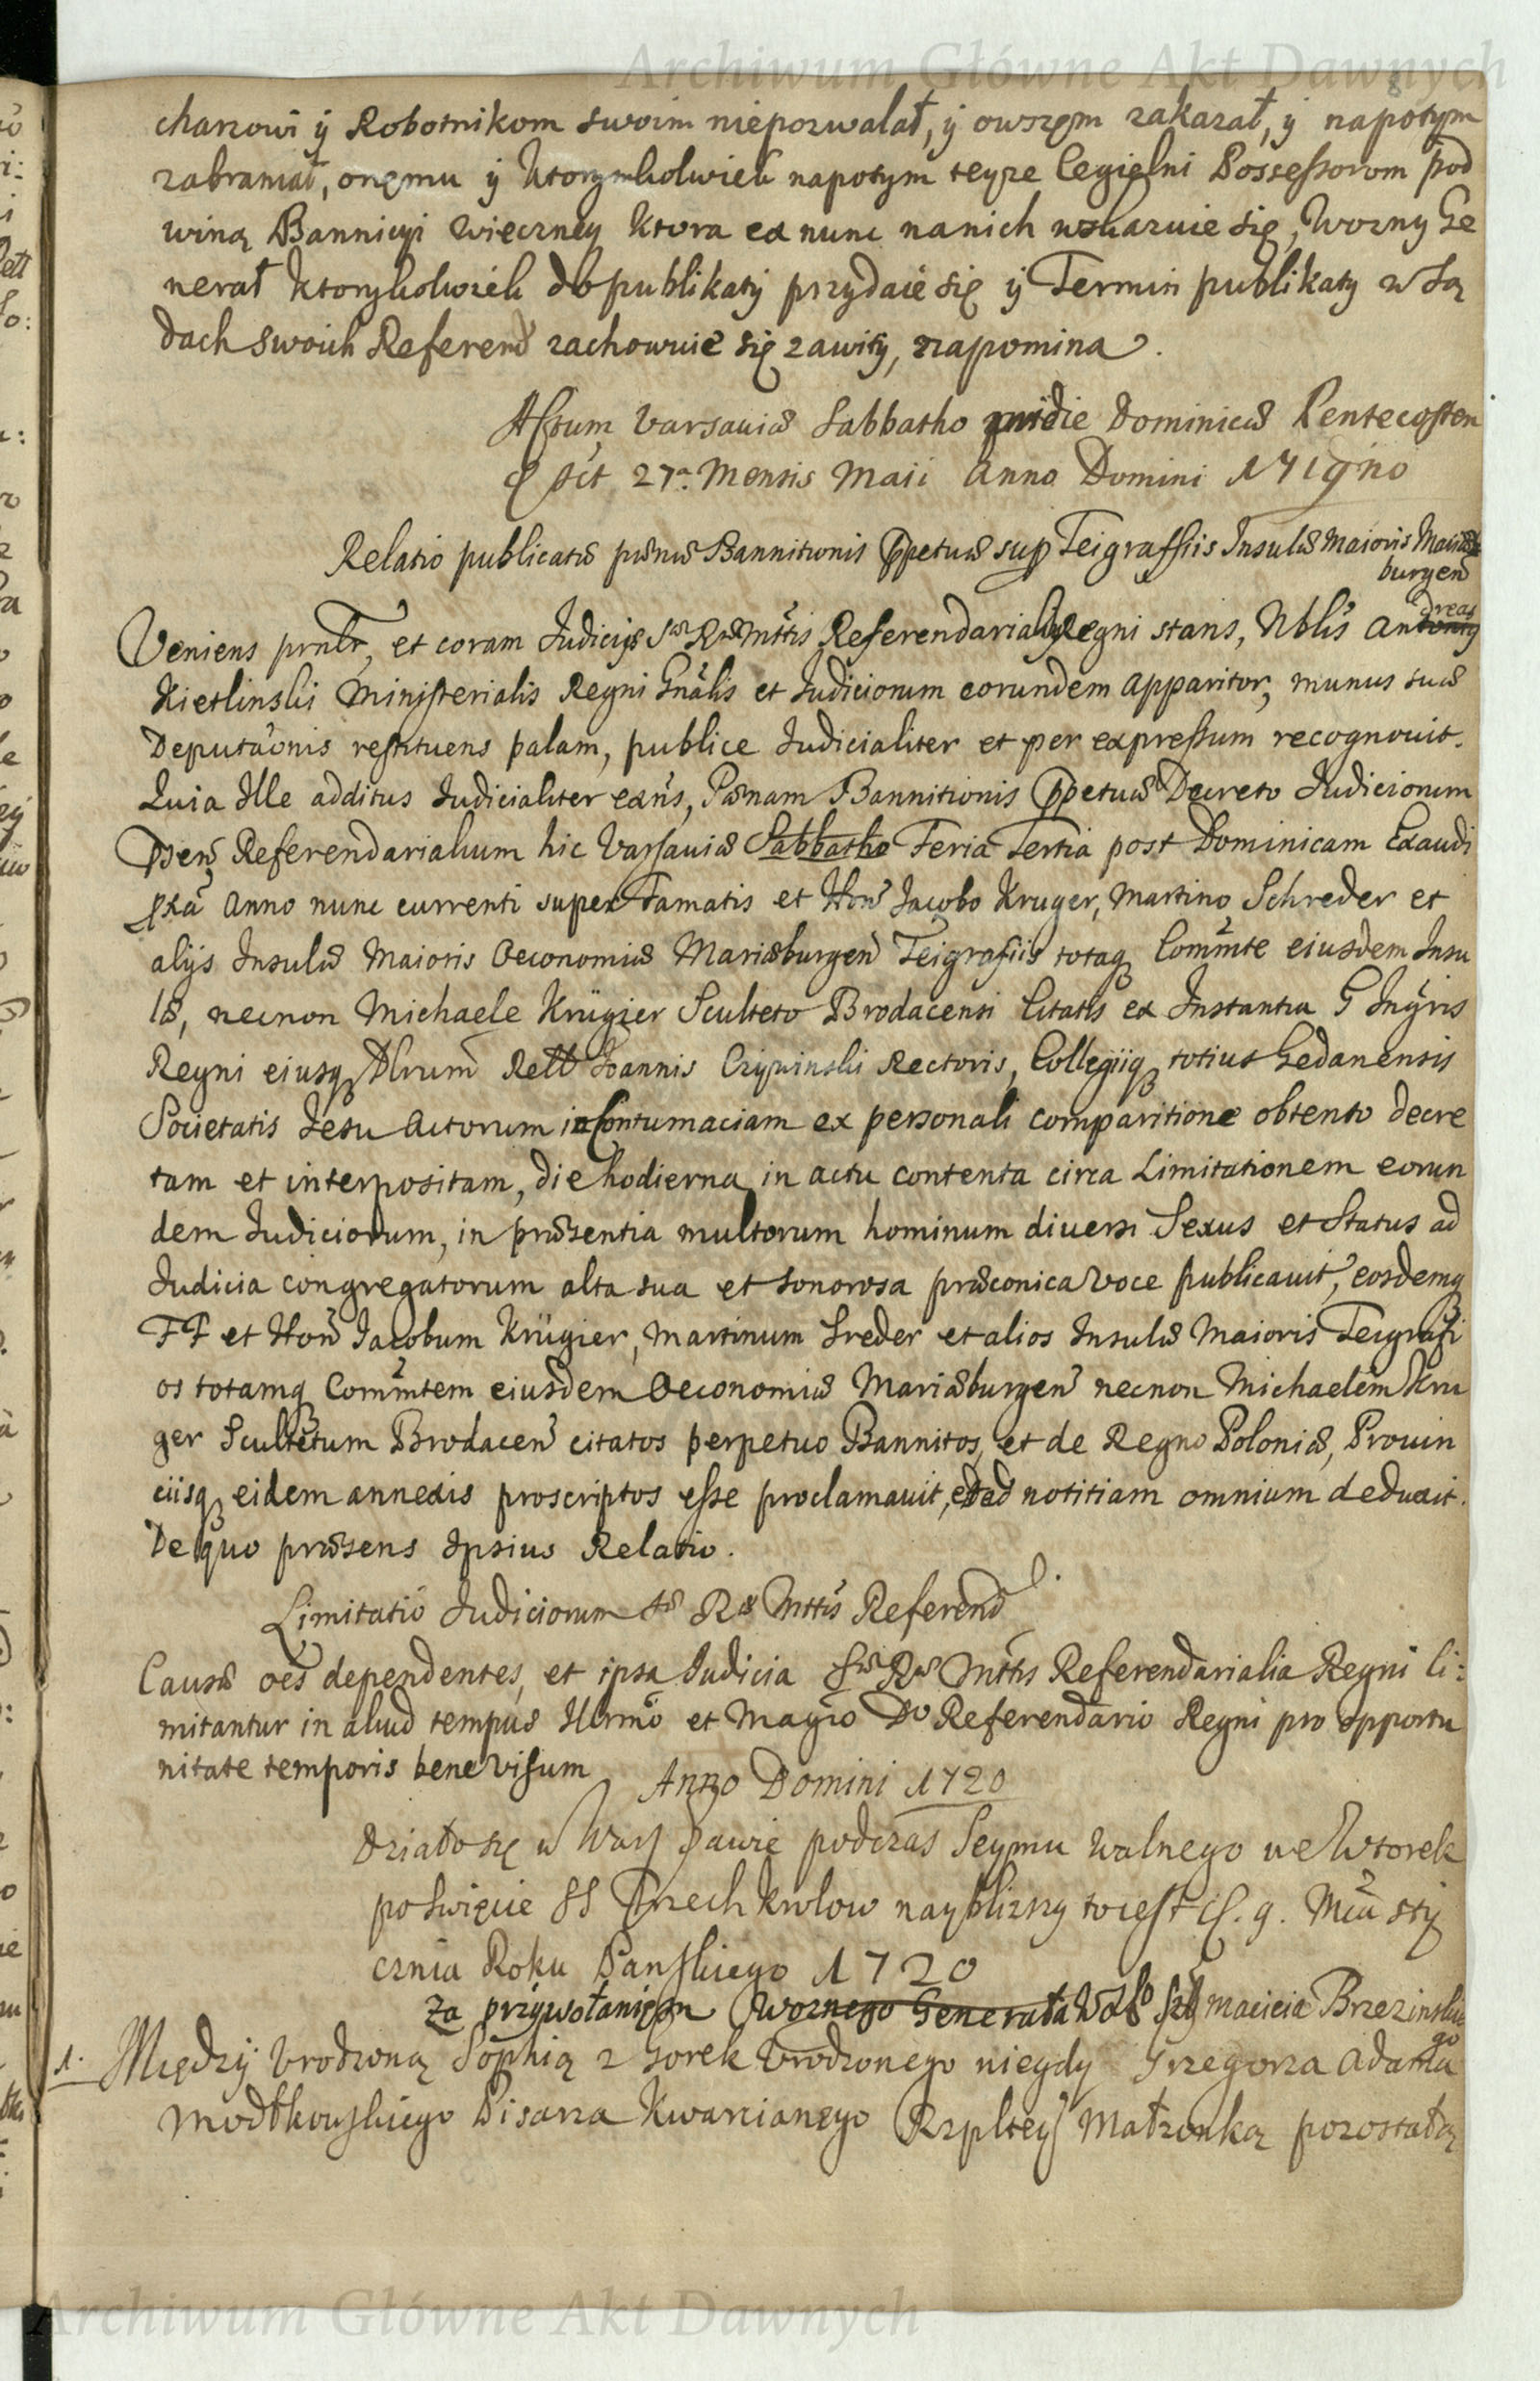 Archiwum Główne Akt Dawnych
8
charzowi ÿ Robotnikom swoim niepozwalał, ÿ owszem zakazał, ÿ napotym
zabraniał, onemu ÿ ktorymkolwiek napotym teyze Cegielni Possessorom pod
winą Bannicyi wieczney ktora ex nunc nanich wskazuie się, Wozny Ge
nerał ktorykolwiek do publikaty przydaie się ÿ Termin publikaty w Są
dach swoich Referend zachowuie się zawity, napomina.
Actum Varsaviæ Sabbatho pridie Dominicæ Pentecosten
sct 27a Mensis Maii Anno Domini 1719no
Relatio publicatæ pænæ Bannitionis ppetuæ sup Teigraffiis Insulæ Maioris Mariæ
burgen
Veniens prntr, et coram Judicijs Sæ Ræ Mttis Referendarialib Regni stans, Nblis Andreas
Kietlinski Ministerialis Regni Gnãlis et Judiciorum eorundem apparitor, munus suæ
Deputaõnis restituens palam, publice Judicialiter et per expressum recognovit.
Quia Ille additus Judicialiter exñs, Pænam Bannitionis ppetuæ Decreto Judiciorum
Psen Referendarialium hic Varsaviæ Sabbatho Feria Tertia post Dominicam Exaudi
pxã Anno nunc currenti super Famatis et Hon Jacobo Kruger, Martino Schreder et
alijs Insulæ Maioris Oeconomiæ Mariæburgen Teigrafiis totaq Commte eiusdem Insu
læ, necnon Michaele Krügier Sculteto Brodacensi Citatis ex Instantia G Ingris
Regni eiusq Dlrum Rell Joannis Czywinski Rectoris, Collegiiq totius Gedanensis
Societatis Jesu Actorum in Contumaciam ex personali comparitione obtento decre
tam et interpositam, die hodierna in actu contenta circa Limitationem eorun
dem Judiciorum, in præsentia multorum hominum diversi Sexus et Status ad
Judicia congregatorum alta sua et sonorosa præconica voce publicavit, eosdemq
FF et Hon Jacobum Krügier, Martinum Sreder et alios Insulæ Maioris Teigrafi
os totamq Commtem eiusdem Oeconomiæ Mariæburgen necnon Michaelem Kru
ger Scultetum Brodacen citatos perpetuo Bannitos, et de Regno Poloniæ, Provin
ciisq eidem annexis proscriptos esse proclamavit, et ad notitiam omnium deduxit.
De quo præsens Ipsius Relatio.
Limitatio Judiciorum Sæ Ræ Mttis Referend
Causæ oẽs dependentes, et ipsa Judicia Sæ Ræ Mttis Referendarialia Regni li:
mitantur in aliud tempus Illrmo et Magco Dno Referendario Regni pro opportu
nitate temporis bene visum
Anno Domini 1720
Działo się w Warszawie podczas Seymu Walnego we Wtorek
po Swięcie SS Trzech krolow nayblizszy to iest d. 9. Mca sty
cznia Roku Panskiego 1720
Za przywołaniem Woznego Generała Macieia Brzezinskie
go
1. Między Urodzoną Sophią z Gorek Urodzonego niegdy Grzegorza Adama
Modłkowskiego Pisarza Kwarcianego Rzpltey Małzonką pozostałą
Archiwum Główne Akt Dawnych